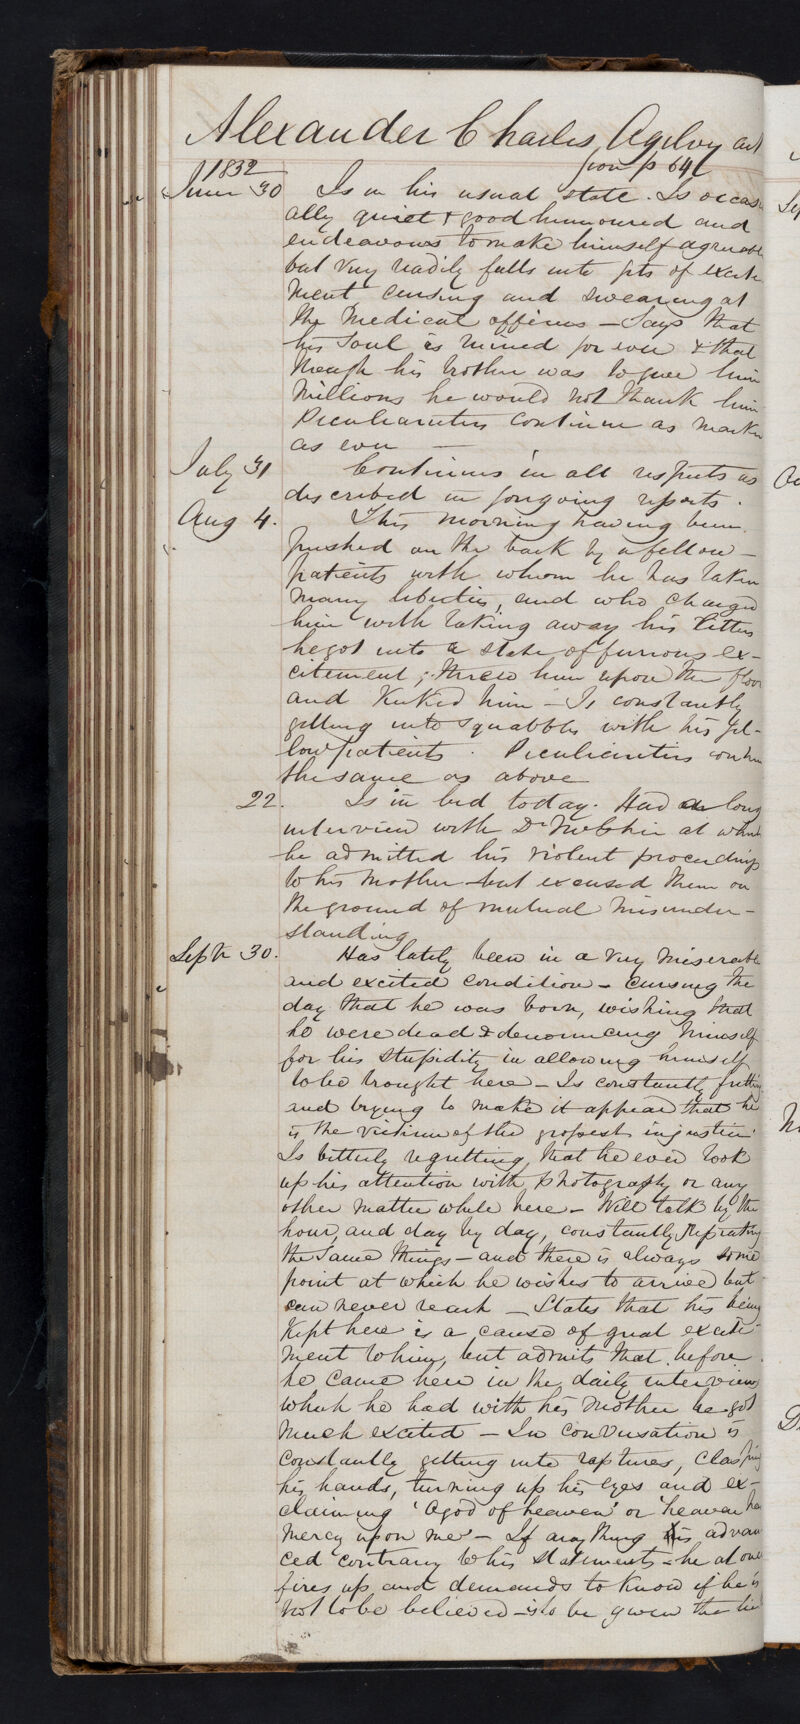 Alexander Charles Ogilvy
from p 64
1832
June 30 Is in his usual state. Is occasion
ally quiet & good humoured and
endeavours to make himself agreeable
but very readily falls into fits of excite
ment, cursing and swearing at
the Medical officers – Says that
his Soul is ruined for ever & that
though his brother was to give him
Millions he would not thank him
Peculiarities continue as marked
as ever –
July 31 Continues in all respects as
described in foregoing reports.
Aug 4. This morning having been
pushed on the back by a fellow–
patients with whom he has taken
many liberties, and who charged
him with taking away his letters
he got into a state of furious ex–
citement; threw him upon the floor
and Kicked him – Is constantly
getting into squabbles with his fel–
low patients. Peculiarities continue
the same as above
22. Is in bed today. Had a long
interview with Dr at which
he admitted his violent proceedings
to his Mother but excused them on
the ground of mutual Misunder–
standing
Septr 30. Has lately been in a very miserable
and excited condition – cursing the
day that he was born, wishing that
he were dead & denouncing himself
for his stupidity in allowing himself
to be brought here – Is constantly fretting
and trying to make it appear that he
is the victim of the grossest injustice.
Is bitterly regretting that he ever took
up his attention with photography or any
other matter while here – Will talk by the
hour, and day by day, constantly repeating
the same things – and there is always some
point at which he wishes to arrive but
can never reach – States that his being
Kept here is a cause of great excite–
ment to him, but admits that before
he came here in the daily interviews
which he had with his Mother he got
much excited – In conversation is
constantly getting into raptures, clasping
his hands, turning up his eyes and ex–
claiming 'O god of heaven' or 'heaven have
mercy upon me' – If anything is advan
ced contrary to his statements – he at once
fires up and demands to know if he is
not to be believed – is to be given the lie